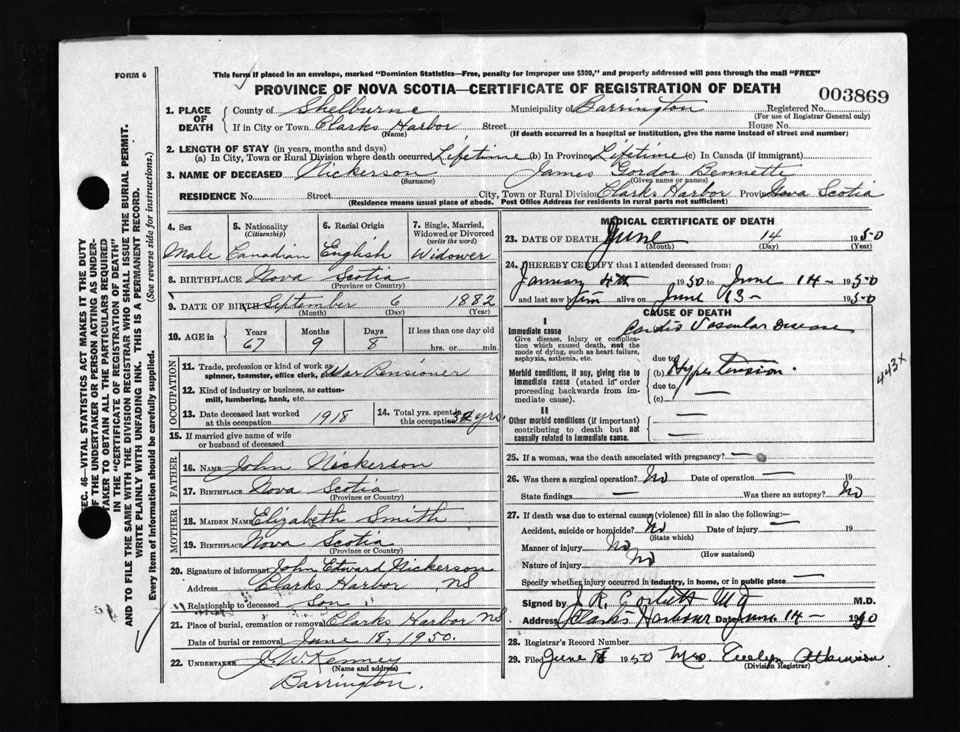 This form if placed in an envelope, marked "Dominion Statistics—Free, penalty for improper use $300," and properly addressed will pass through the mail "FREE"
FORM 6
PROVINCE OF NOVA SCOTIA—CERTIFICATE OF REGISTRATION OF DEATH
003869
1. PLACE OF DEATH
County of Shelburne Municipality of Barrington Registered No.
(For use of Registrar General only)
If in City or Town Clarks Harbor Street House No.
(Name) (If death occurred in a hospital or institution, give the name instead of street and number)
2. LENGTH OF STAY (in years, months and days)
(a) In City, Town or Rural Division where death occurred Lifetime (b) In Province Lifetime (c) In Canada (if immigrant)
3. NAME OF DECEASED Nickerson James Gordon Bennette
(Surname) (Given name or names)
RESIDENCE No. Street City, Town or Rural Division Clarks Harbor Province Nova Scotia
(Residence means usual place of abode. Post Office Address for residents in rural parts not sufficient)
4. Sex 5. Nationality (Citizenship) 6. Racial Origin 7. Single, Married, Widowed or Divorced (write the word)
Male Canadian English Widower
8. BIRTHPLACE Nova Scotia
(Province or Country)
9. DATE OF BIRTH September 6 1882
(Month) (Day) (Year)
10. AGE in Years Months Days If less than one day old
67 9 8 hrs. or min.
OCCUPATION
11. Trade, profession or kind of work as spinner, teamster, office clerk, War Pensioner
12. Kind of industry or business, as cotton-mill, lumbering, bank, etc.
13. Date deceased last worked at this occupation 1918
14. Total yrs. spent in this occupation 32 yrs.
15. If married give name of wife or husband of deceased
FATHER
16. NAME John Nickerson
17. BIRTHPLACE Nova Scotia
(Province or Country)
MOTHER
18. MAIDEN NAME Elizabeth Smith
19. BIRTHPLACE Nova Scotia
(Province or Country)
20. Signature of informant John Edward Nickerson
Address Clarks Harbor, NS
Relationship to deceased son
21. Place of burial, cremation or removal Clarks Harbor NS
Date of burial or removal June 18, 1950.
22. UNDERTAKER J. W. Kenney
(Name and address)
Barrington.
MEDICAL CERTIFICATE OF DEATH
23. DATE OF DEATH June 14 1950
(Month) (Day) (Year)
24. I HEREBY CERTIFY that I attended deceased from:
January 4th 1950 to June 14- 1950
and last saw him alive on June 13- 1950
CAUSE OF DEATH
I
Immediate cause
Give disease, injury or complication which caused death, not the mode of dying, such as heart failure, asphyxia, asthenia, etc.
Cardio Vascular Disease
due to
Morbid conditions, if any, giving rise to immediate cause (stated in order proceeding backwards from immediate cause).
(b) Hypertension.
due to
(c) —
II
Other morbid conditions (if important) contributing to death but not causally related to immediate cause.
—
—
443X
25. If a woman, was the death associated with pregnancy? —
26. Was there a surgical operation? No Date of operation — 19
State findings — Was there an autopsy? No
27. If death was due to external causes (violence) fill in also the following:—
Accident, suicide or homicide? No Date of injury — 19
(State which)
Manner of injury No
(How sustained)
Nature of injury No
Specify whether injury occurred in industry, in home, or in public place —
Signed by M.D.
Address Clarks Harbour Date June 14- 1950
28. Registrar's Record Number
29. Filed June 1950 Mrs. Evelyn Atkinson
(Division Registrar)
SEC. 46—VITAL STATISTICS ACT MAKES IT THE DUTY
OF THE UNDERTAKER OR PERSON ACTING AS UNDER-
TAKER TO OBTAIN ALL THE PARTICULARS REQUIRED
IN THE "CERTIFICATE OF REGISTRATION OF DEATH"
AND TO FILE THE SAME WITH THE DIVISION REGISTRAR WHO SHALL ISSUE THE BURIAL PERMIT.
WRITE PLAINLY WITH UNFADING INK. THIS IS A PERMANENT RECORD.
Every item of information should be carefully supplied. (See reverse side for instructions.)